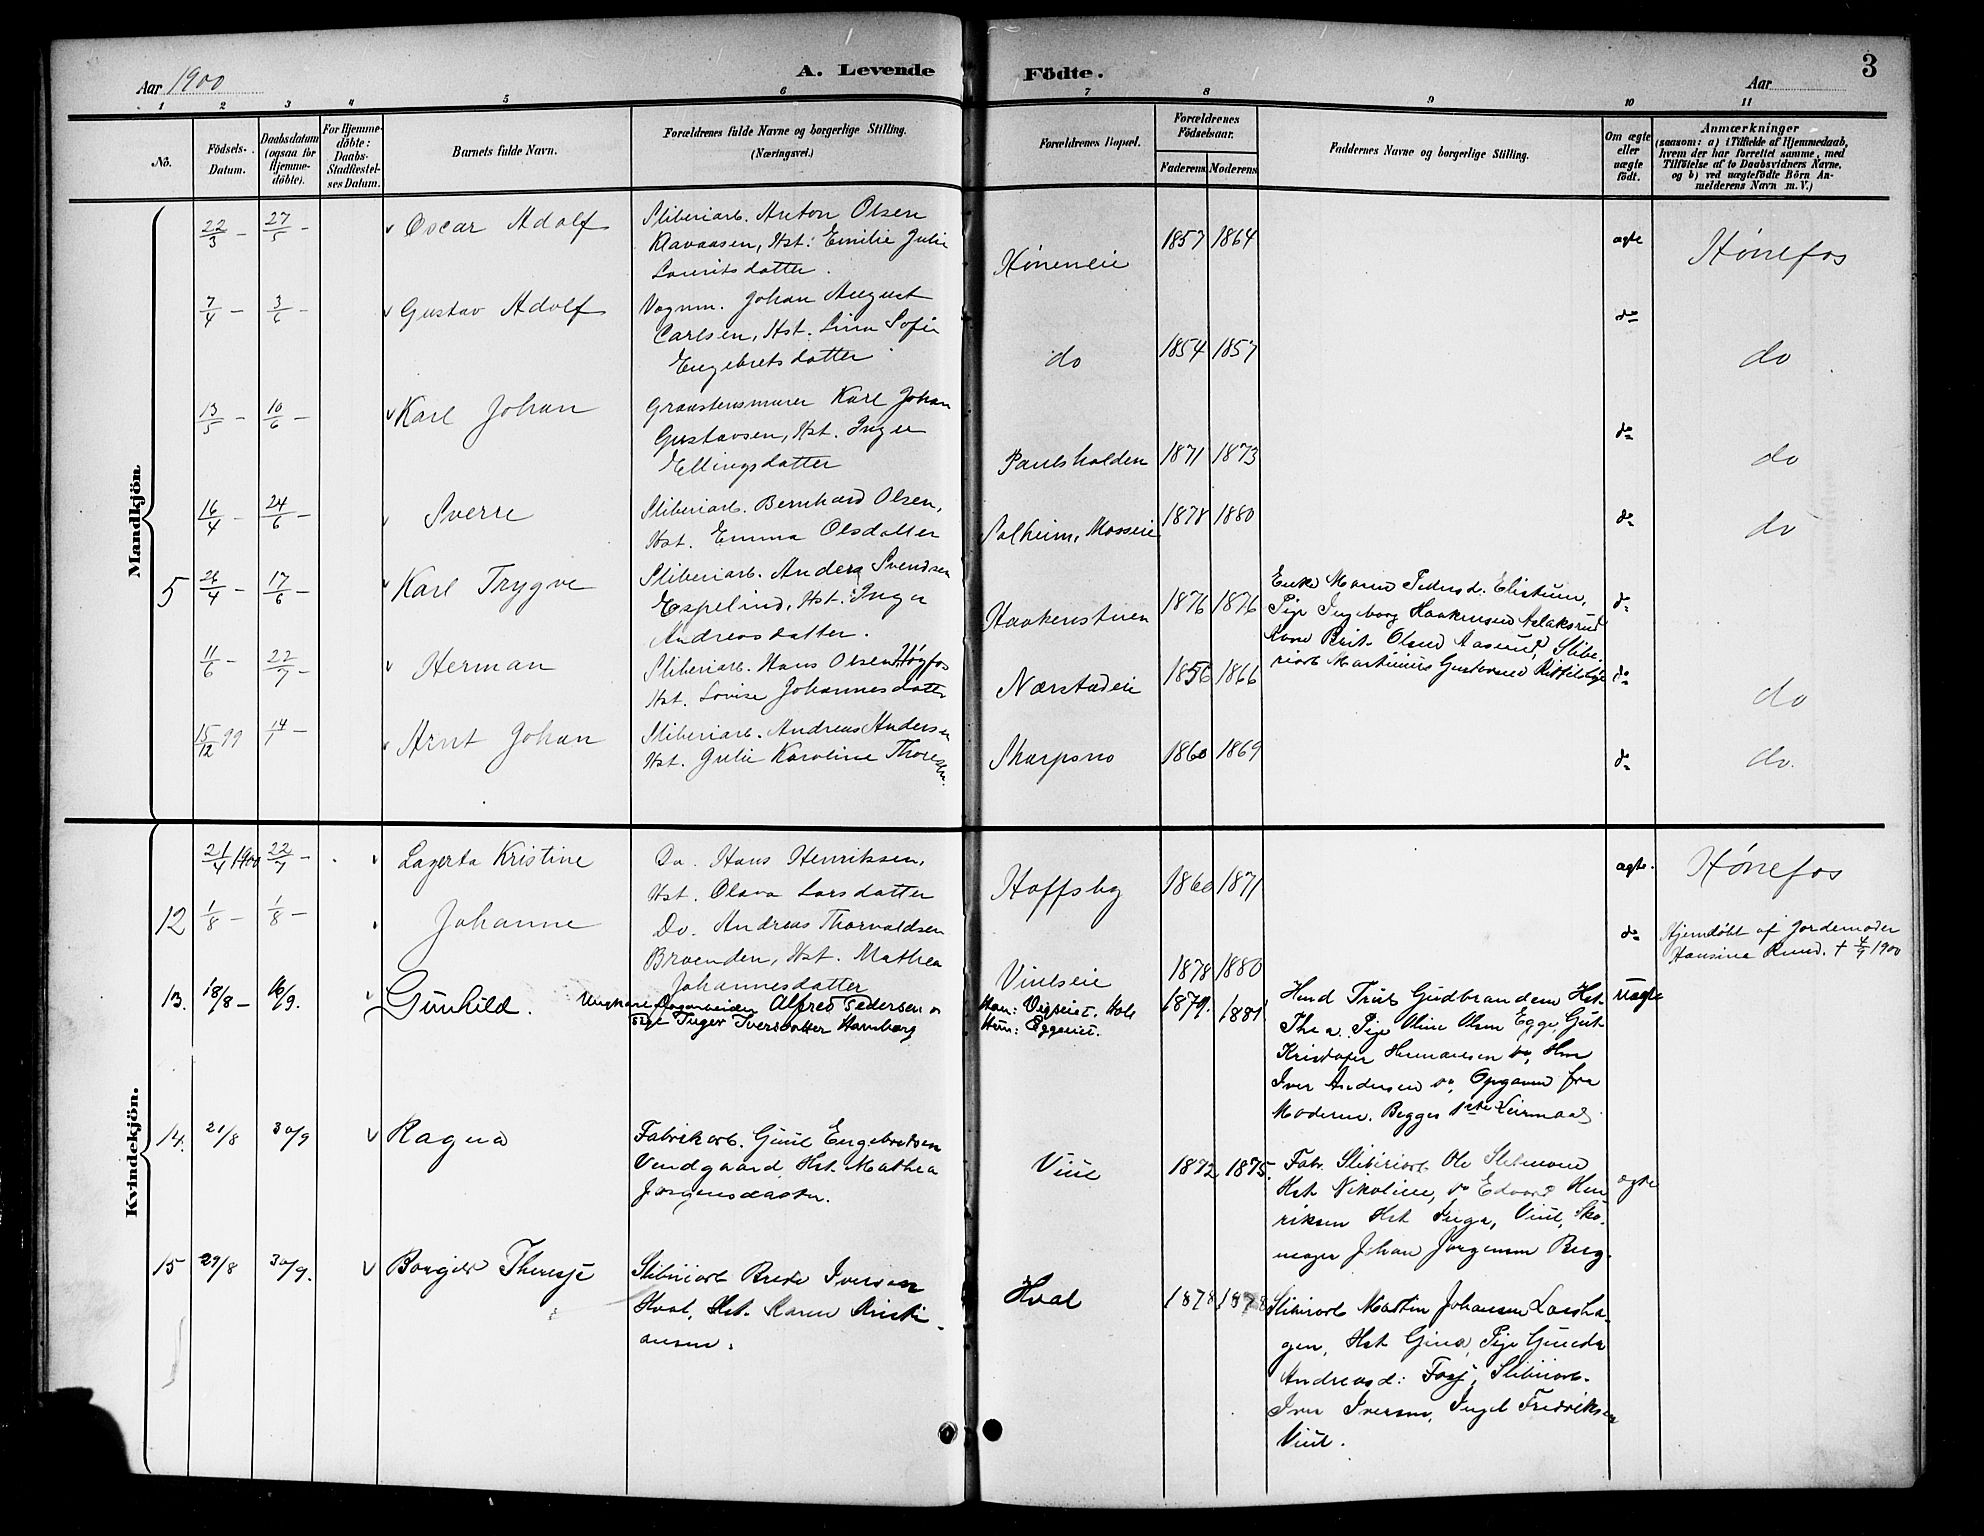 Aar 1900
A. Levende
Födte.
Aar
3
1 2 3 4 5 6 7 8 9 10 11
No.
Födsels-
Datum.
Daabsdatum
(ogsaa for
Hjemme-
döbte).
For Hjemme-
döbte:
Daabs-
Stadfæstel-
ses Datum.
Barnets fulde Navn.
Forældrenes fulde Navne og borgerlige Stilling.
(Næringsvei.)
Forældrenes Bopæl.
Forældrenes
Födselsaar.
Faderens. Moderens.
Faddernes Navne og borgerlige Stilling.
Om ægte
eller
uægte
födt.
Anmærkninger
(saasom: a) i Tilfælde af Hjemmedaab,
hvem der har forrettet samme, med
Tilföielse af to Daabsvidners Navne,
og b) ved uægtefödte Börn An-
melderens Navn m. V.)
Mandkjön
22/3 - 27/5 - Oscar Adolf
Sliberiarb. Anton Olsen
Klavaasen, Hst: Emilie Julie
Lauritsdatter.
Høneneie 1857 1864 ægte Hønefos
7/4 - 3/6 - Gustav Adolf
Vognm. Johan August
Carlsen, Hst. Lina Sofie
Engebretsdatter
do 1854 1857 do do
13/5 - 10/6 - Karl Johan
Graastensmurer Karl Johan
Gustavsen, Hst. Inger
Ellingsdatter
Paulshalden 1871 1873 do do
16/4 - 24/6 - Sverre
Sliberiarb. Bernhard Olsen,
Hst. Emma Olsdatter
Solheim, Mosseie 1878 1880 do do
5 26/4 - 17/6 - Karl Trygve
Sliberiarb. Anders Svendsen
Espelind, Hst. Inger
Andreasdatter.
Haakenstuen 1876 1876
Enke Maren Pedersd. Elistuen,
Pige Ingeborg Haakensen Aslaksrud
Kone Brit. Olsen Aasund, Slibe-
riarb Martinius Gustavsen
do
11/6 - 22/7 - Herman
Sliberiarb. Hans Olsen Høgfos
Hst. Lovise Johannesdatter
Nærstadeie 1856 1866 do do
15/12 99 - Arnt Johan
Sliberiarb. Andreas Andersen
Hst. Julie Karoline Thoresdtr.
Skarpsno 1860 1869 do do.
Kvindekjön.
21/4 1900 22/7 - Lagerta Kristine
Do. Hans Henriksen,
Hst. Olava Larsdatter
Hoffsby 1860 1871 ægte. Hønefos
12 1/8 - 1/8 - Johanne
Do. Andreas Thorvaldsen
Braenden, Hst. Mathea
Johannesdatter
Viulseie 1878 1880 do
Hjemdöbt af Jordemoder
Hansina Ruud. + 4/9 1900
13. 18/8 - 16/9. Gunhild.
Ungkare Dagarbeider Alfred Pedersen og
Pige Inger Iversdatter Hamborg
Han: Vigseie, Hole
Hun: Eggeeie.
1879. 1881
Hmd Truls Gudbrandsen Hst.
Thea. Pige Oline Olsen Egge, Gut
Kristofer Hermansen do, Hmd
Iver Andersen do, Opgaven fra
Moderen. Begges 1ste Leirmaal.
Uægte
14. 21/8 30/9 Ragna
Fabrikarb. Gúul Engebretsen
Vendgaard, Hst. Mathea
Jörgensdatter.
Viul 1872 1875.
Fab. Sliberiarb. Ole
Hst. Nikoline, do Edvard Hen-
riksen Hst Inga, Viul, Sko-
mager Johan Jörgensen Berg.
ægte
15 29/8 30/9. Borgild Theresje
Sliberiarb Brede Iversen
Hval, Hst. Karen Kristi-
ansen.
Hval 1878 1878
Sliberiarb Martin Johansen Laesha-
gen, Hst Gina, Pige Gunda
Andreasd: Foss, Sliberiarb.
Iver Iversen, Fredriksen
Viul.